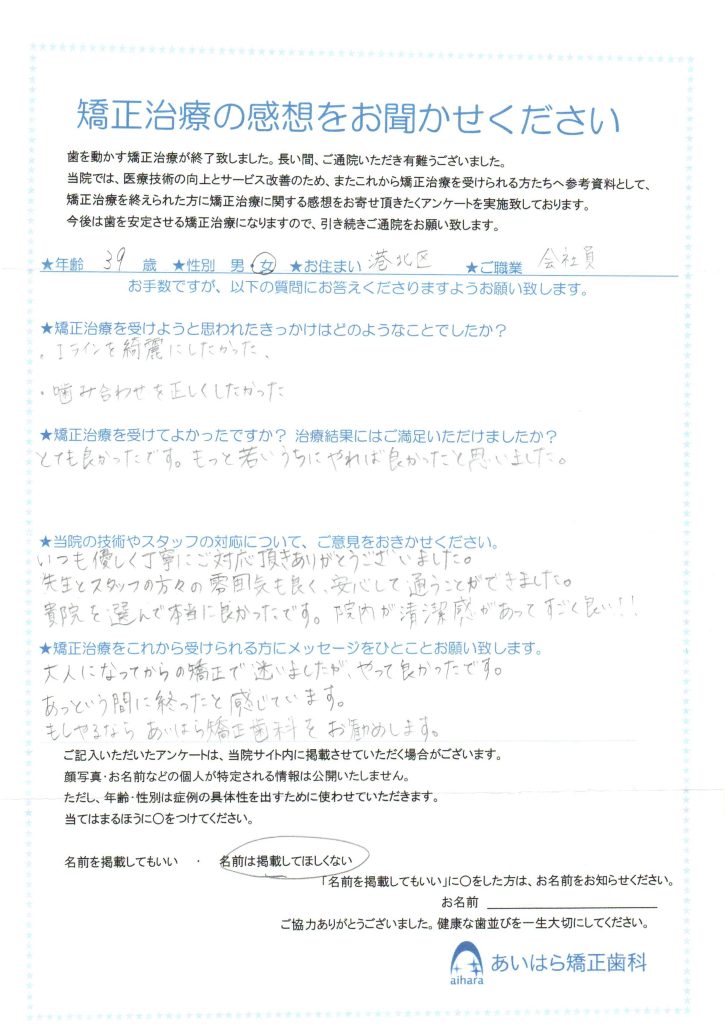 矯正治療の感想をお聞かせください
歯を動かす矯正治療が終了致しました。長い間、ご通院いただき有難うございました。
当院では、医療技術の向上とサービス改善のため、またこれから矯正治療を受けられる方たちへ参考資料として、
矯正治療を終えられた方に矯正治療に関する感想をお寄せ頂きたくアンケートを実施致しております。
今後は歯を安定させる矯正治療になりますので、引き続きご通院をお願い致します。
★年齢 39 歳 ★性別 男・女 ★お住まい 港北区 ★ご職業 会社員
お手数ですが、以下の質問にお答えくださりますようお願い致します。
★矯正治療を受けようと思われたきっかけはどのようなことでしたか？
・Iラインを綺麗にしたかった、
・噛み合わせを正しくしたかった
★矯正治療を受けてよかったですか？ 治療結果にはご満足いただけましたか？
とても良かったです。もっと若いうちにやれば良かったと思いました。
★当院の技術やスタッフの対応について、ご意見をおきかせください。
いつも優しく丁寧にご対応頂きありがとうございました。
先生とスタッフの方々の雰囲気も良く、安心して通うことができました。
貴院を選んで本当に良かったです。院内が清潔感があってすごく良い!!
★矯正治療をこれから受けられる方にメッセージをひとことお願い致します。
大人になってからの矯正で迷いましたが、やって良かったです。
あっという間に終ったと感じています。
もしやるなら あいはら矯正歯科をお勧めします。
ご記入いただいたアンケートは、当院サイト内に掲載させていただく場合がございます。
顔写真・お名前などの個人が特定される情報は公開いたしません。
ただし、年齢・性別は症例の具体性を出すために使わせていただきます。
当てはまるほうに〇をつけてください。
名前を掲載してもいい ・ 名前は掲載してほしくない
「名前を掲載してもいい」に〇をした方は、お名前をお知らせください。
お名前
ご協力ありがとうございました。健康な歯並びを一生大切にしてください。
aihara あいはら矯正歯科